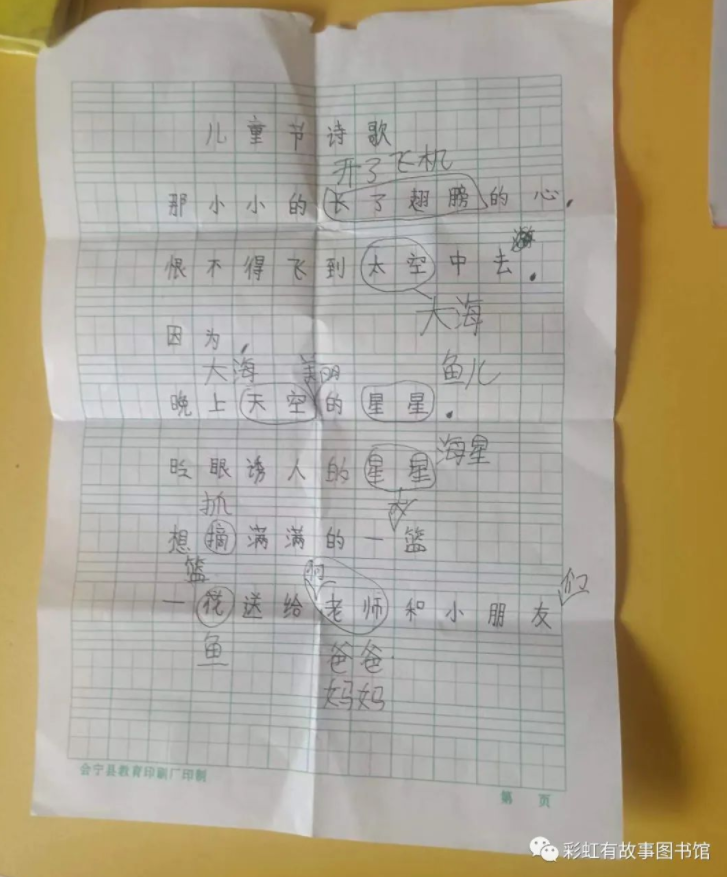 儿童节诗歌
开了飞机
那小小的长了翅膀的心，
恨不得飞到太空中去
大海
因为，
大海 美丽 鱼儿
晚上天空的星星，
眨眼诱人的星星 海星
抓
想摘满满的一篮
篮 们
一 送给老师和小朋友
鱼 爸爸
妈妈
会宁县教育印刷厂印制
第 页
彩虹有故事图书馆